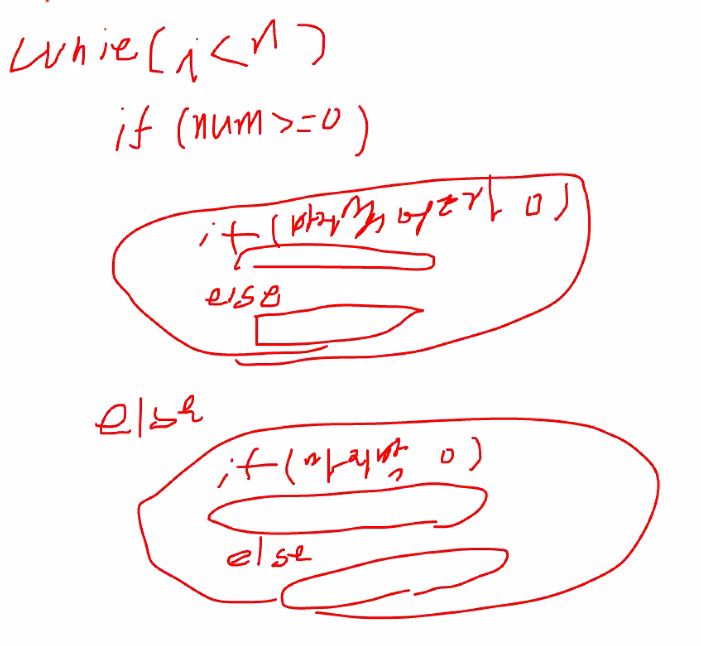 while(i<n)
if (num>=0)
if (마지막 0)
else
else
if (마지막 0)
else